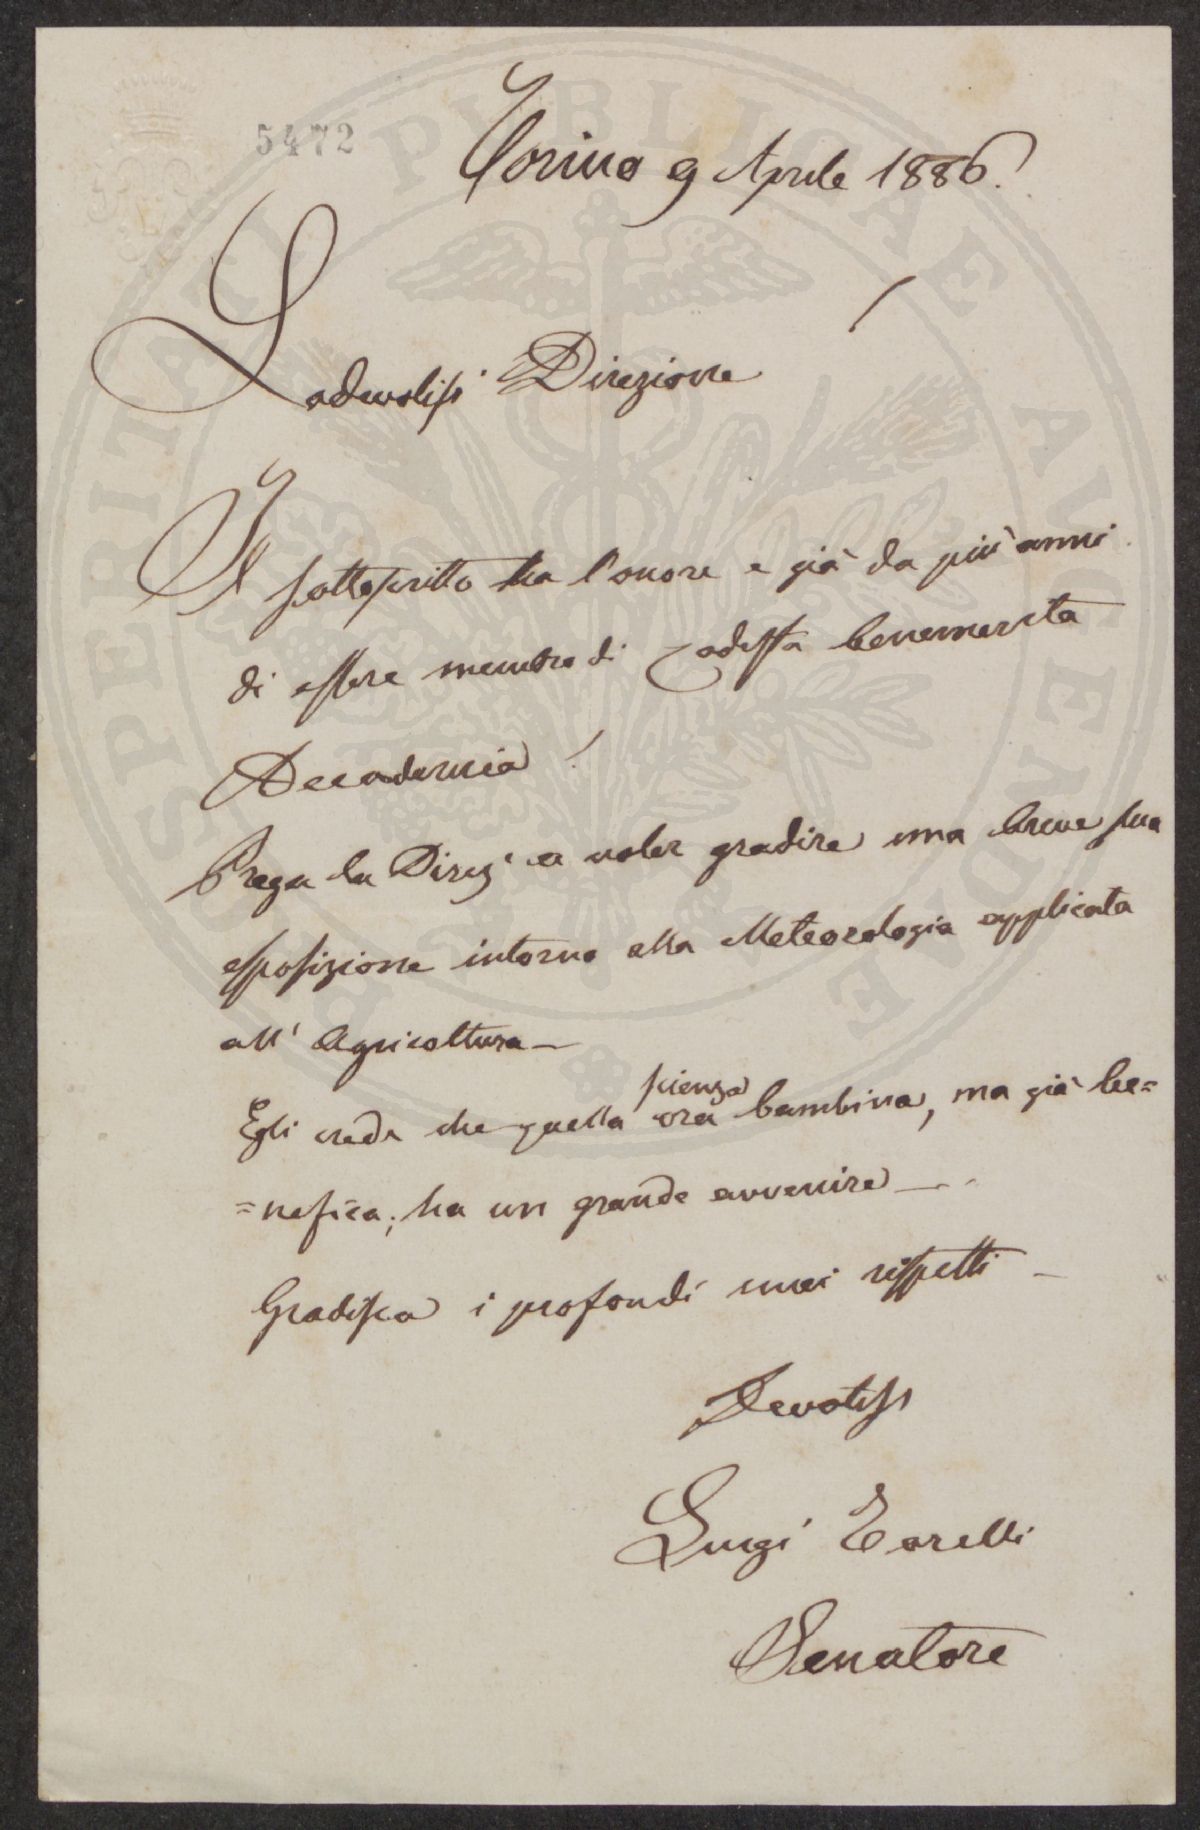 5472
Torino 9 Aprile 1886.
Lodevoliss Direzione
Il sottoscritto ha l'onore e già da più anni
di essere membro di Codessta benemerita
Accademia!
Prega la Direz e a voler gradire una breve sua
esposizione intorno alla Meteorologia applicata
all' Agricoltura —
scienza
Egli crede che quella ora bambina, ma già be=
=nefica; ha un grande avvenire —
Gradisca i profondi miei rispetti —
Devotiss
Luigi Torelli
Senatore
PROSPERITATI PVBLICAE AVGENDAE